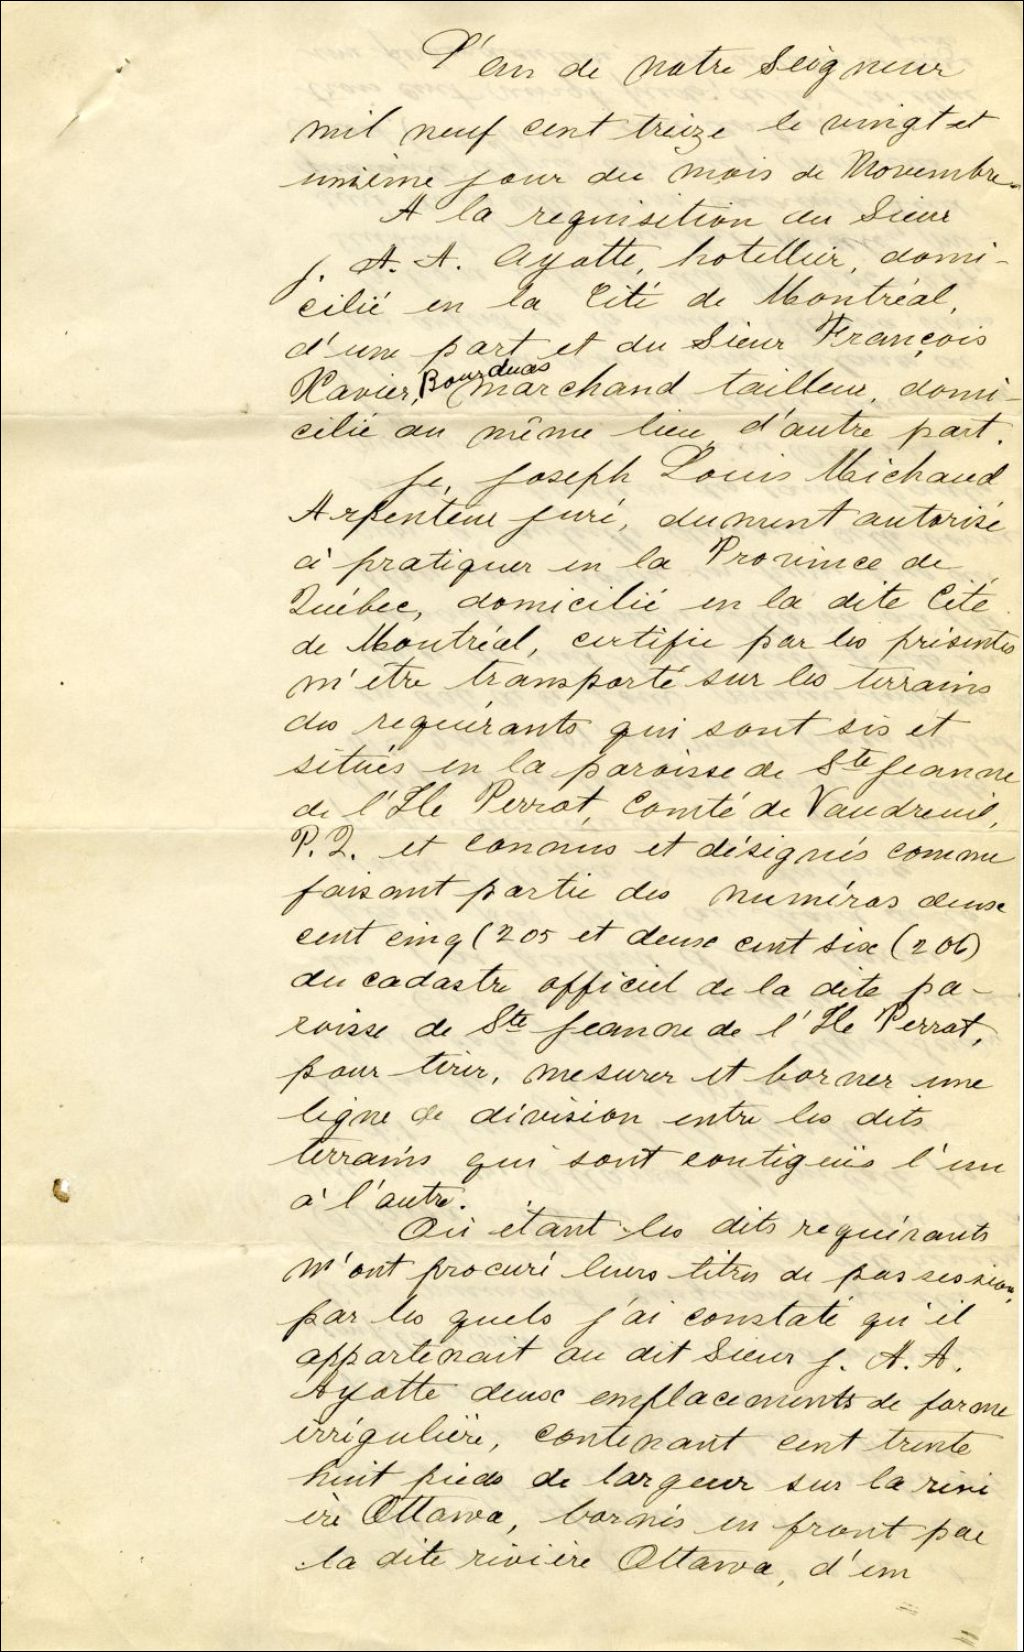 L'an de notre Seigneur
mil neuf cent treize le vingt et
unième jour du mois de Novembre
A la requisition du Sieur
J. A. A. Ayotte, hotellier, domi-
cilié en la Cité de Montréal,
d'une part et du Sieur François
Xavier, Bourduas marchand tailleur, domi-
cilié au même lieu, d'autre part.
Je, Joseph Louis Michaud
Arpenteur juré, dument autorisé
à pratiquer en la Province de
Québec, domicilié en la dite Cité
de Montréal, certifie par les présentes
m'être transporté sur les terrains
des requérants qui sont sis et
situés en la paroisse de Ste Jeanne
de l'Ile Perrot, Comté de Vaudreuil,
P.Q. et connus et désignés comme
faisant partie des numéros deux
cent cinq (205 et deux cent six (206)
du cadastre officiel de la dite pa-
roisse de Ste Jeanne de l'Ile Perrot,
pour tirer, mesurer et borner une
ligne de division entre les dits
terrains qui sont contigüs l'un
à l'autre.
Où étant les dits requérants
m'ont procuré leurs titres de possession,
par les quels j'ai constaté qu'il
appartenait au dit Sieur J. A. A.
Ayotte deux emplacements de forme
irrégulière, contenant cent trente
huit pieds de largeur sur la rivi
ère Ottawa, bornés en front par
la dite rivière Ottawa, d'un